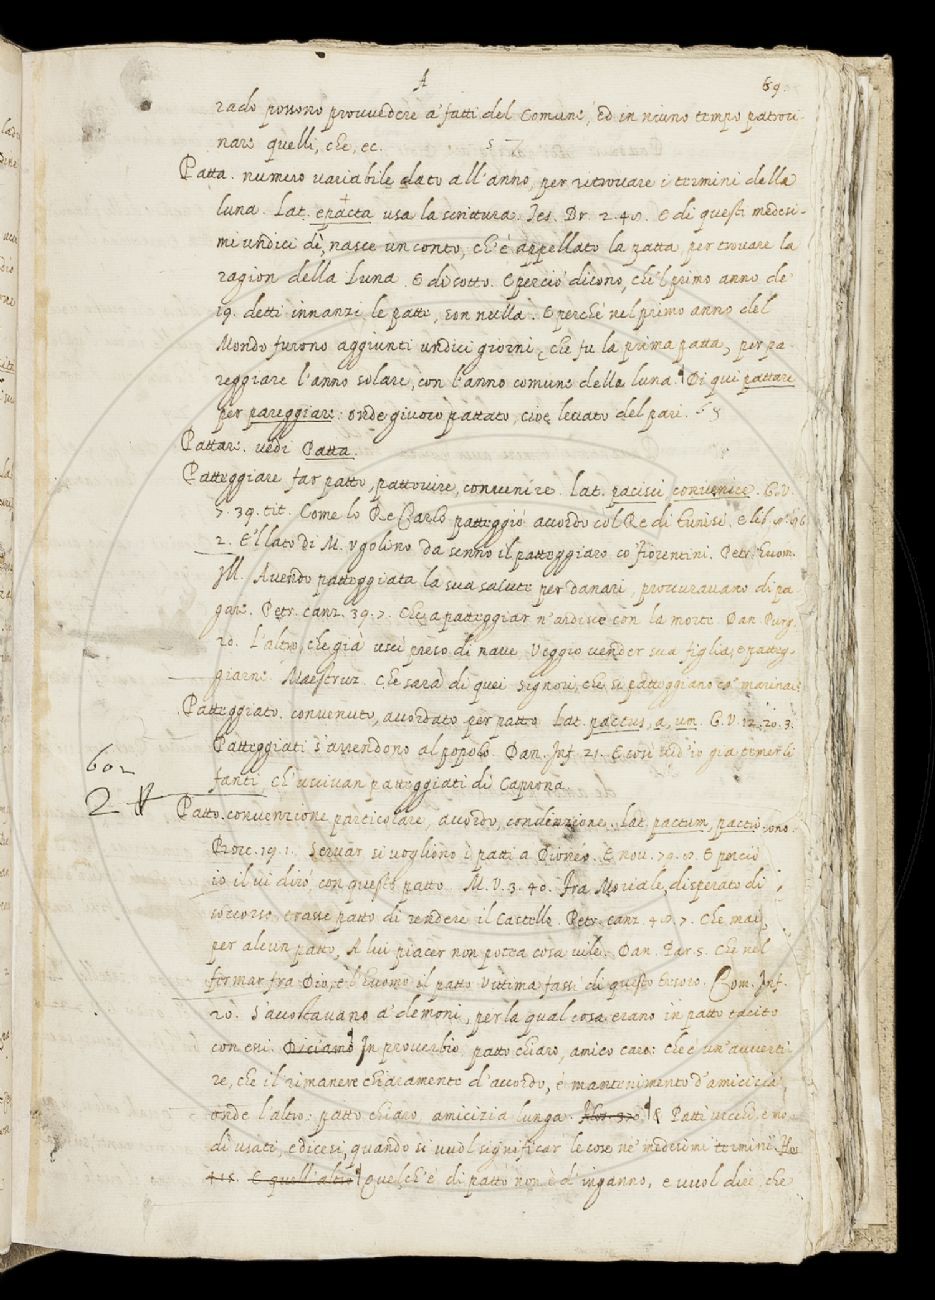 A
69
rado possono provvedere a' fatti del Comune, Ed in niuno tempo patroci-
nare quelli, che, ec.
Patta. numero variabile dato all'anno, per ritrovare i termini della
luna. Lat. epacta usa la scrittura. Tes. Br. 2. 48. E di questi medesi-
mi undici dì, nasce un conto, ch'è appellato la patta, per trovare la
ragion della luna. E di sotto. E perciò dicono, che'l primo anno de
19. detti innanzi, le patte, son nulla. E perchè nel primo anno del
Mondo furono aggiunti undici giorni, che fu la prima patta, per pa-
reggiare l'anno solare, con l'anno comune della luna. Di qui pattare
per pareggiare: onde giuoco pattato, cioè levato del pari.
Pattare. vedi Patta.
Patteggiare far patto, pattovire, convenire. Lat. pacisci convenire. G.V.
7. 39. tit. Come lo Re Carlo patteggiò accordo col Re di Tunisi. E lib. 9. 96.
2. E'l lato di M. Ugolino da senno il patteggiaro co' fiorentini. Petr. huom.
Ill. Avendo patteggiata la sua salute per danari, procuravano di pa-
gare. Petr. canz. 39. 7. Che a patteggiar n'ardisce con la morte. Dan. Purg.
20. L'altro, che già uscì preso di nave, Veggio vender sua figlia, e patteg-
giarne. Maestruz. Che sarà di quei signori, che si patteggiano co' marinai
Patteggiato. convenuto, accordato per patto. Lat. pactus, a, um. G.V. 12. 20. 3.
Patteggiati s'arrendono al popolo. Dan. Inf. 21. E così vid'io già temer li
fanti, Ch'uscivan patteggiati di Caprona.
602
2
Patto. convenzione particolare, accordo, convenzione. Lat. pactum, pactio, onis.
Bocc. 19. 1. Servar si vogliono i patti a Dioneo. E nov. 79. E perciò
io il vi dirò, con questo patto. M.V. 3. 40. Fra Moriale, disperato di
soccorso, trasse patto di rendere il Castello. Petr. canz. 48. 7. Che mai
per alcun patto, A lui piacer non potea cosa vile. Dan. Par. 5. Che nel
fermar fra Dio, e l'huomo il patto Vittima fassi di questo tesoro. Com. Inf.
20. S'accostavano a' demoni, per la qual cosa erano in patto tacito
con essi. Diciamo In proverbio, patto chiaro, amico caro: che è un'avverti-
re, che il rimanere chiaramente d'accordo, è mantenimento d'amicizia,
onde l'altro: patto chiaro, amicizia lunga. Patti vecchi, e mo-
di usati, e dicesi, quando si vuol significar le cose ne' medesimi termini.
415. E quell'altro Quel ch'è di patto non è d'inganno, e vuol dire, che